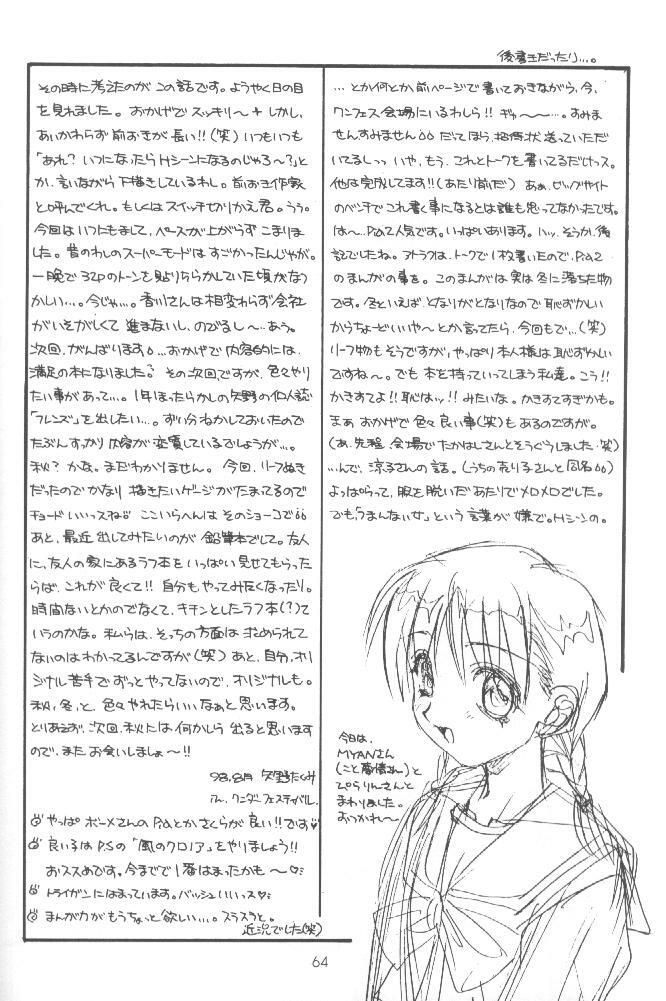 後書きだったり…。
…とか何とか、前ページで書いておきながら、今、
ワンフェス会場にいるわしら!! ギュ〜〜…。すみま
せんすみません 6 6 だってほう、招待状 送っていただ
いてるしっっ いや、もう、これとトークを書いてるだけっス。
他は完成してます!!(あたり前だ) あぁ、ビッグサイト
のベンチでこれ書く事になるとは誰も思ってなかったです。
は〜、P.a.2 人気です。いっぱいあります。ハッ、そうか、後
記でしたね。アトラフは、トークで1枚書いたので、P.a.2
のまんがの事を。このまんがは実は冬に落ちた物
です。冬といえば、となりがとなりなので恥ずかしい
からちょーどいいや〜とか言ってたら、今回もで…(笑)
リーフ物もそうですが、やっぱり本人様は恥ずかしい
ですね〜。でも本を持っていってしまう私達。こう!!
かきすてよ!!恥はッ!!みたいな。かきすてすぎかも。
まぁ おかげで色々良い事(笑)もあるのですが。
(あ、先程、会場でたかはしさんとそうぐうしました・笑)
…んで、涼子さんの話。(うちの売り子さんと同名 6 6)
よっぱらって、服を脱いだあたりでメロメロでした。
でも「つまんない女」という言葉が嫌で。Hシーンの。
その時に考えたのがこの話です。ようやく日の目
を見れました。おかげでスッキリ〜+ しかし、
あいかわらず前おきが長い!!(笑) いつもいつも
「あれ? いつになったらHシーンになるのじゃろ〜?」と
か、言いながら下描きしているわし。前おき作家
と呼んでくれ。もしくはスイッチせりかえ君。うぅ。
今回はいつにもまして、ペースが上がらずこまりま
した。昔のわしのスーパーモードはすごかったんじゃが。
一晩で32Pのトーンを貼りちらかしていた頃がなつ
かしい…。今じゃ…。香川さんは相変わらず会社
がいそがしくて進まないし、のびるし〜…あぅ。
次回、がんばります 6 …おかげで内容的には、
満足の本になりました。? その次回ですが、色々やり
たい事があって…。1年ほったらかしの矢野の個人誌
「フレンズ」を出したい…。ずい分ねかしておいたので
たぶんすっかり内容が変質しているでしょうが…。
秋? かな。まだわかりません。今回、リーフぬき
だったのでかなり描きたいゲージがたまってるので
チョードいいっスね♡ ここいらへんはそのショーコで 6 6
あと、最近出してみたいのが鉛筆本でして。友人
に、友人の家にあるラフ本をいっぱい見せてもらった
らば、これが良くて!! 自分もやってみたくなったり。
時間ないとかのでなくて、キチンとしたラフ本(?)て
いうのかな。私らは、そっちの方面は求められて
ないのはわかってるんですが(笑) あと、自分、オリ
ジナル苦手でずっとやってないので、オリジナルも。
秋、冬、と、色々やれたらいいなぁと思います。
とりあえず、次回、秋には何かしら出ると思います
ので、またお会いしましょ〜!!
98.8月 矢野たくみ
ワンダーフェスティバル。
やっぱボーメさんのP.aとかさくらが良い!!です♥
良いろはP.Sの「風のクロノア」をやりましょう!!
おススメです。今までで1番はまったかも〜♡
トライガンにはまっています。バッシュいいっス♡
まんが力がもうちょっと欲しい…。スラスラと。
近況でした(笑)
今日は、
MYANさん
(こと 夢情さん)と
ぴらりんさんと
まわりました。
おつかれ〜
64